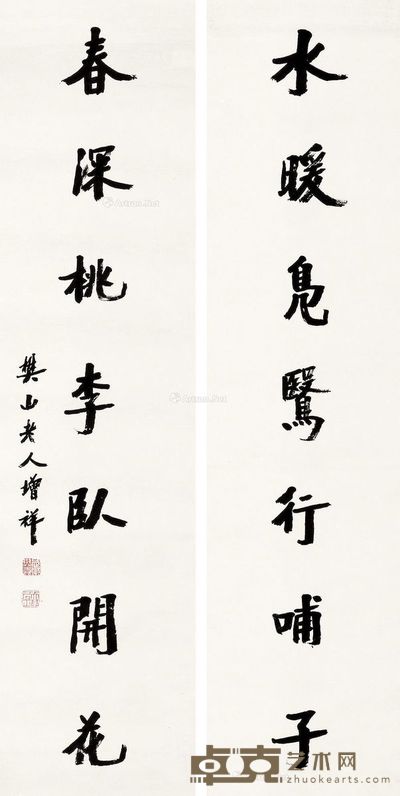 水暖鳬鷖行哺子
春深桃李臥開花
樊山老人增祥
Artron.Net
Artron.Net
卓克艺术网
zhuokearts.com